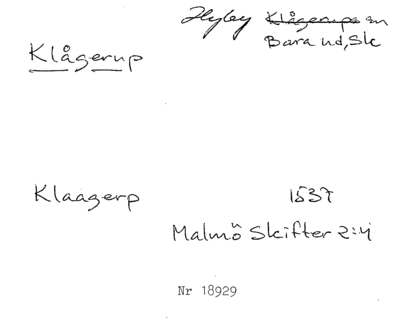 Hyby Klågerups sn
Klågerup Bara hd, Sk
Klaagerp 1537
Malmö Skifter 2:4
Nr 18929